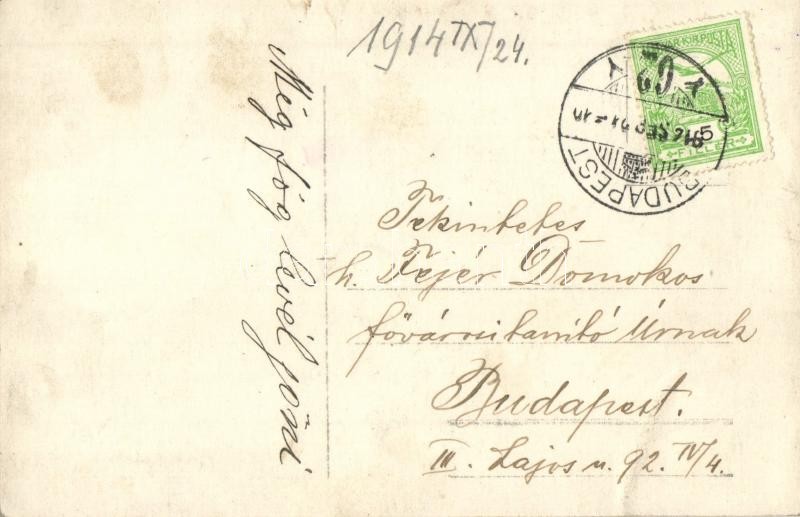 1914 IX/24.
Még fog levél jönni
MAGYAR KIR. POSTA
5
FILLÉR
BUDAPEST
Tekintetes
h. Fejér Domokos
fővárosi tanító Úrnak
Budapest.
III. Lajos u. 92. IV/4.